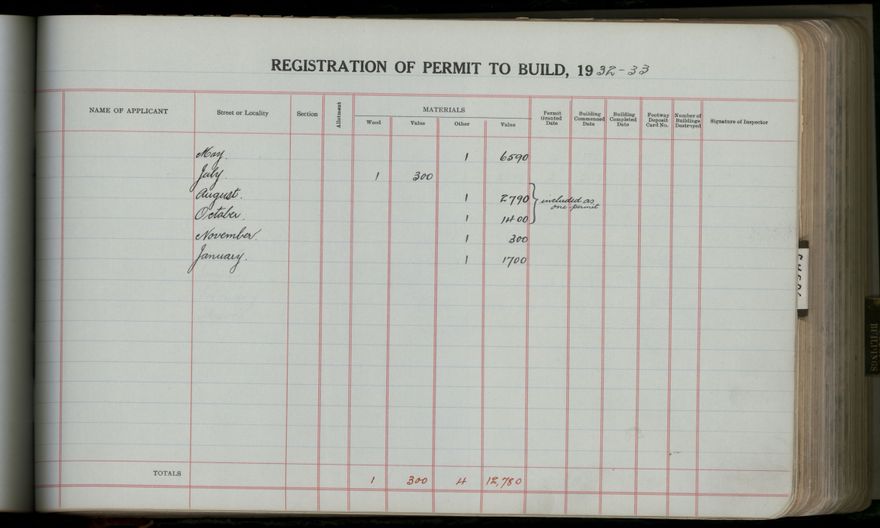 REGISTRATION OF PERMIT TO BUILD, 1932-33
NAME OF APPLICANT Street or Locality Section Allotment MATERIALS Permit Granted Date Building Commenced Date Building Completed Date Footway Deposit Card No. Number of Buildings Destroyed Signature of Inspector
Wood Value Other Value
May. 1 6590
July. 1 300
August. 1 2790 included as
October. 1 1400 one permit
November. 1 300
January. 1 1700
TOTALS 1 300 4 12,780
BUILDINGS